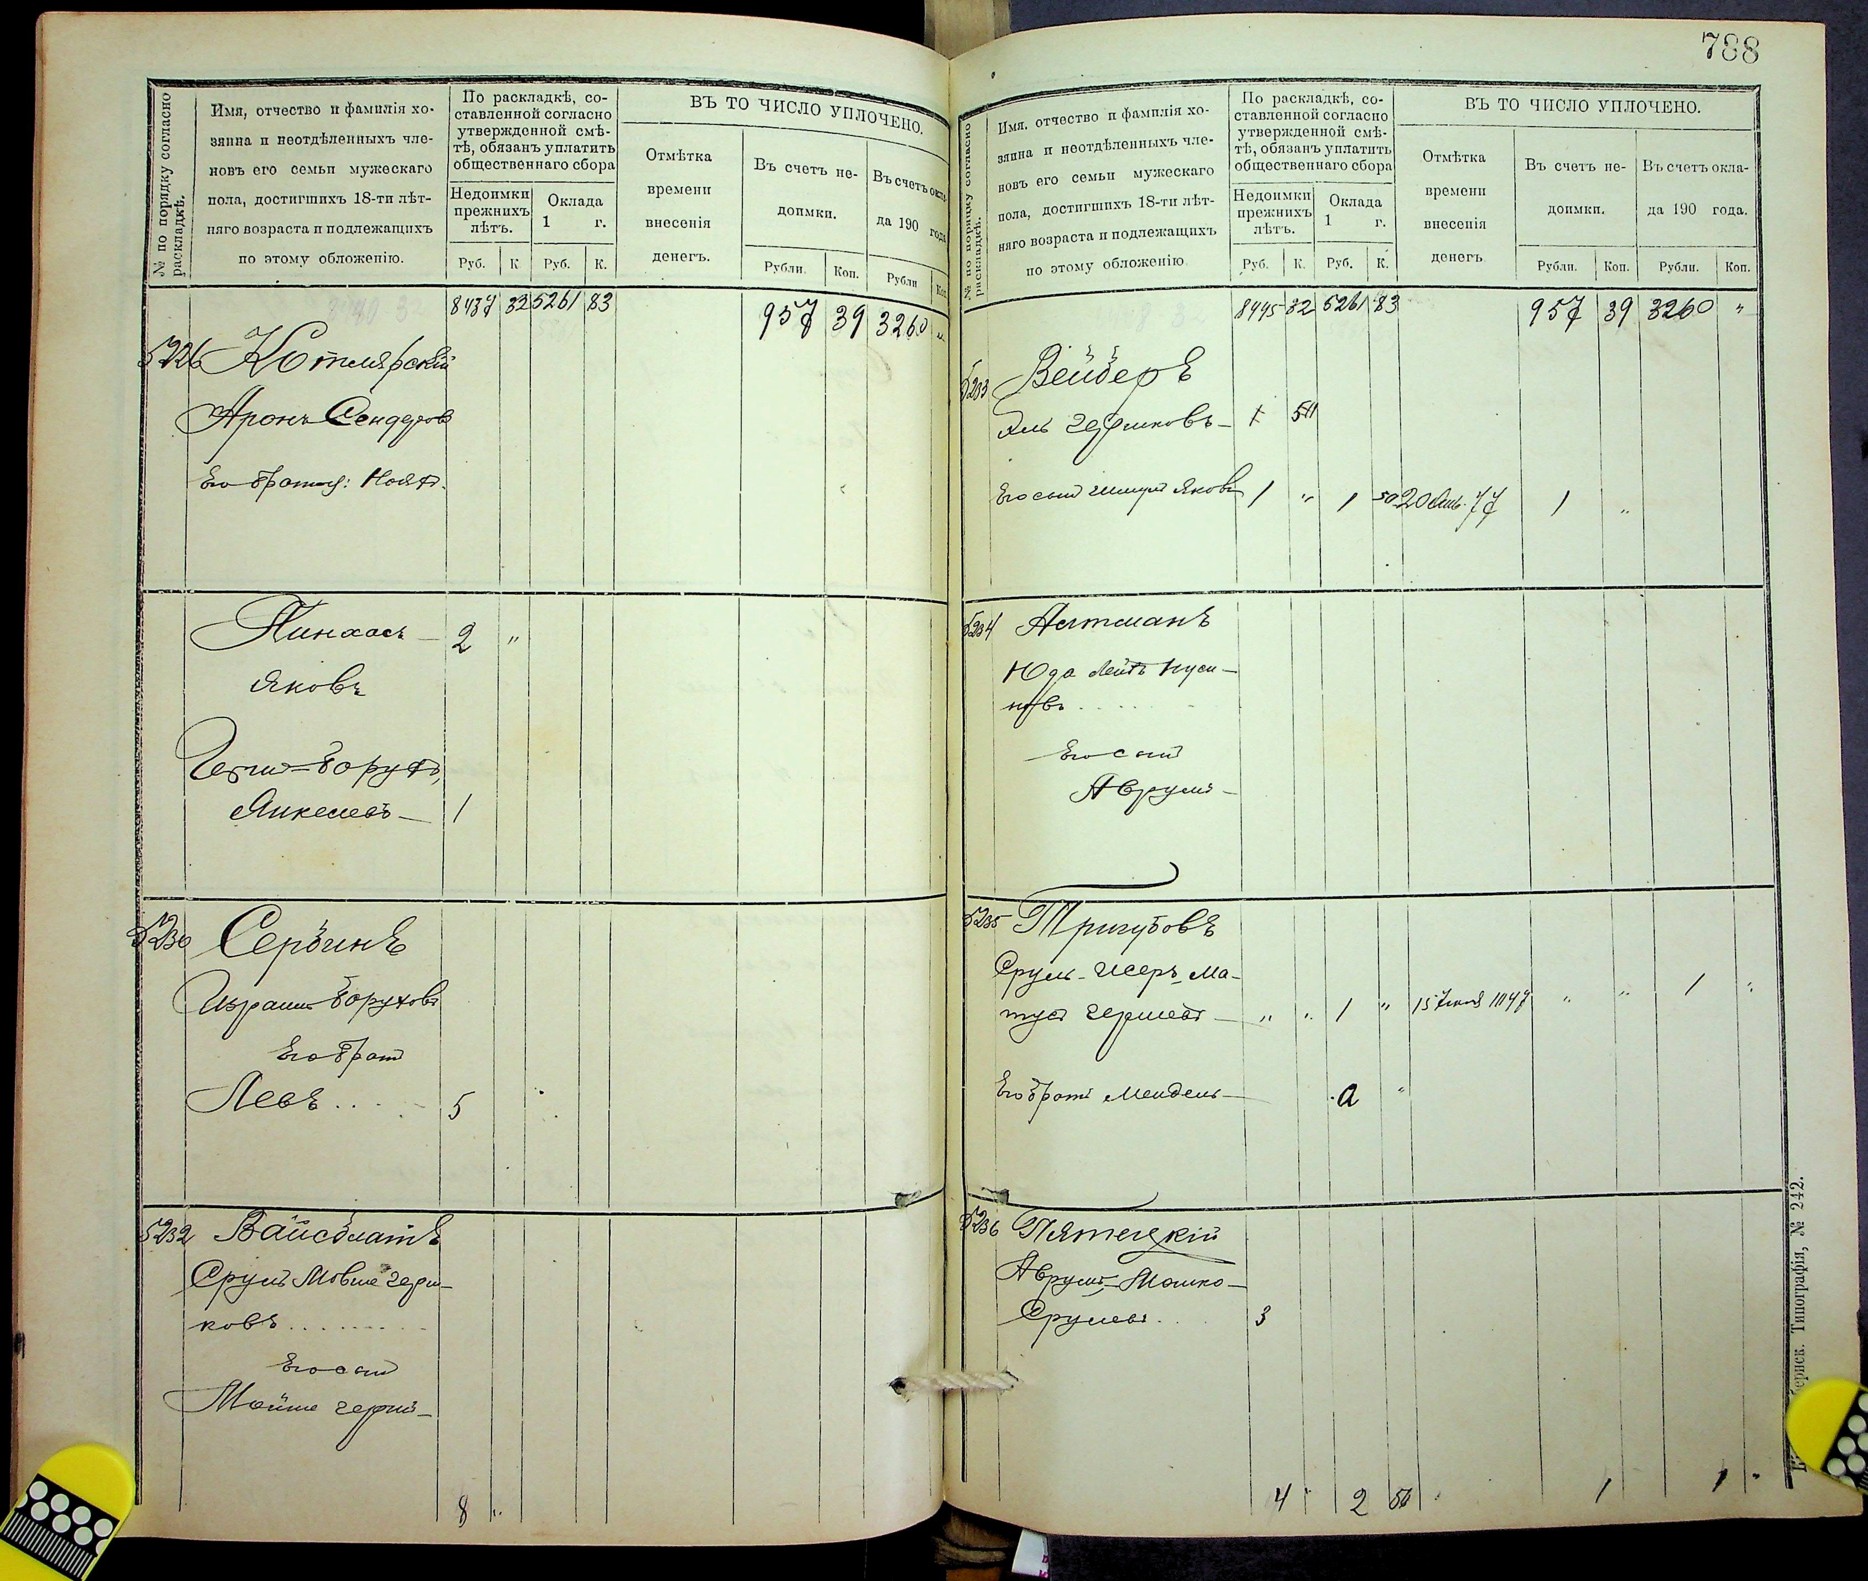 788
№ по порядку согласно раскладкѣ.
Имя, отчество и фамилія хо-
зяина и неотдѣленныхъ чле-
новъ его семьи мужескаго
пола, достигшихъ 18-ти лѣт-
няго возраста и подлежащихъ
по этому обложенію.
По раскладкѣ, со-
ставленной согласно
утвержденной смѣ-
тѣ, обязанъ уплатить
общественнаго сбора
Недоимки
прежнихъ
лѣтъ.
Оклада
1 г.
Руб. К. Руб. К.
ВЪ ТО ЧИСЛО УПЛОЧЕНО.
Отмѣтка
времени
внесенія
денегъ.
Въ счетъ не-
доимки.
Въ счетъ окла-
да 190 года
Рубли. Коп. Рубли Коп.
8437 32 5261 83 957 39 3260 "
5226 Котлярскій
Аронъ Сендеровъ
Его братья:
Пинхасъ — 2 "
Яковъ
Герш-Борухъ
Янкелевъ — 1
5230 Сербинъ
Израиль Боруховъ
Его братъ
Левъ . . . . 5
5232 Вайсблатъ
Сруль Мовше Герш-
ковъ . . . . . . .
Его сынъ
Мойше Герш —
8 "
№ по порядку согласно раскладкѣ.
Имя, отчество и фамилія хо-
зяина и неотдѣленныхъ чле-
новъ его семьи мужескаго
пола, достигшихъ 18-ти лѣт-
няго возраста и подлежащихъ
по этому обложенію
По раскладкѣ, со-
ставленной согласно
утвержденной смѣ-
тѣ, обязанъ уплатить
общественнаго сбора
Недоимки
прежнихъ
лѣтъ.
Оклада
1 г.
Руб. К. Руб. К.
ВЪ ТО ЧИСЛО УПЛОЧЕНО.
Отмѣтка
времени
внесенія
денегъ
Въ счетъ не-
доимки.
Въ счетъ окла-
да 190 года.
Рубли. Коп. Рубли. Коп.
8445 32 5261 83 957 39 3260 "
5233 Вейберъ
Гершковъ —
Его сынъ Яковъ 1 " 1 50 20 1 "
5234 Альтманъ
Юда Лейбъ Нуси-
новъ . . . . .
Его сынъ
Аврумъ —
5235 Тригубовъ
Сруль-Исеръ Ма-
тусъ Гершевъ — " " 1 " 15 " " 1 "
Его братъ Мендель — "
5236 Пятецкій
Аврумъ-Мошко —
Срулевъ . . . 3
4 " 2 50 1 1 "
Типографія, № 242.